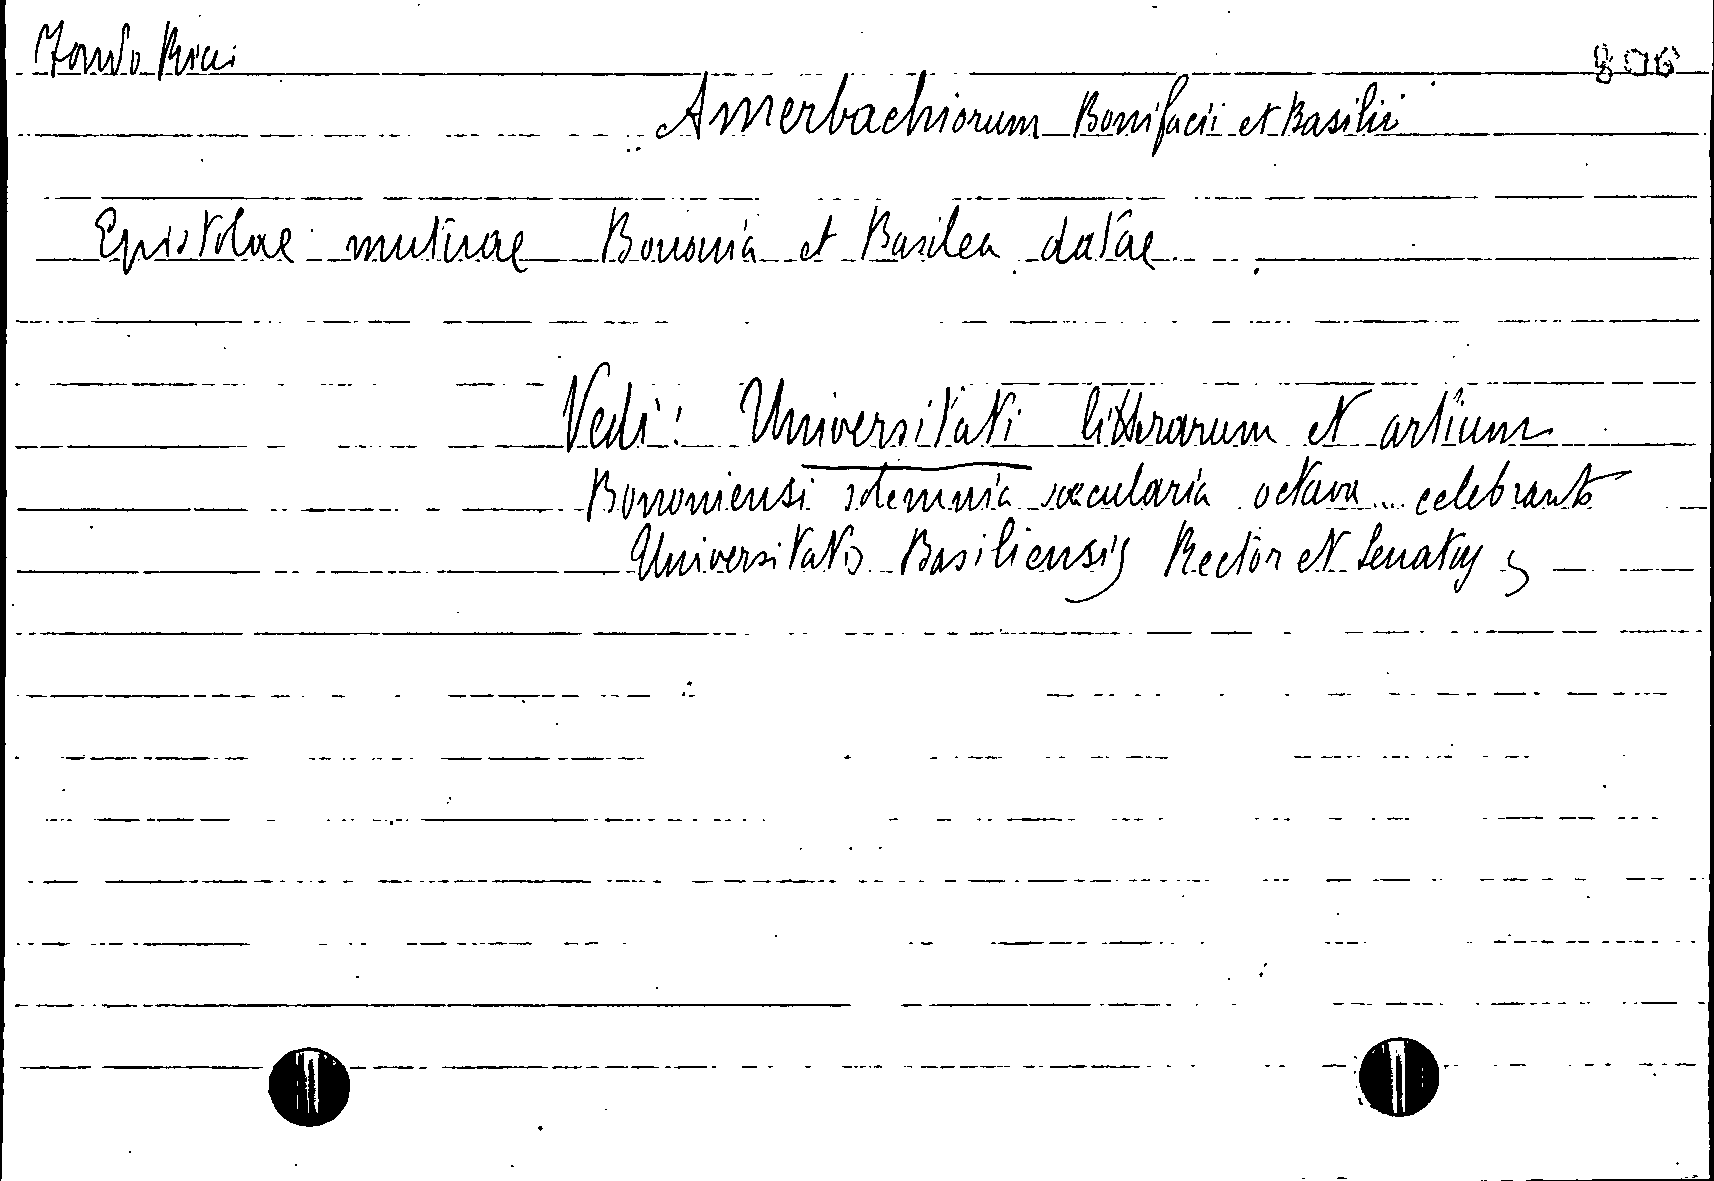 Fondo Ricci
806
Amerbachiorum Bonifacii et Basilii
Epistolae mutuae Bononia et Basilea datae
Vedi: Universitati litterarum et artium
Bononiensi solemnia saecularia octava... celebranti
Universitatis Basiliensis Rector et Senatus